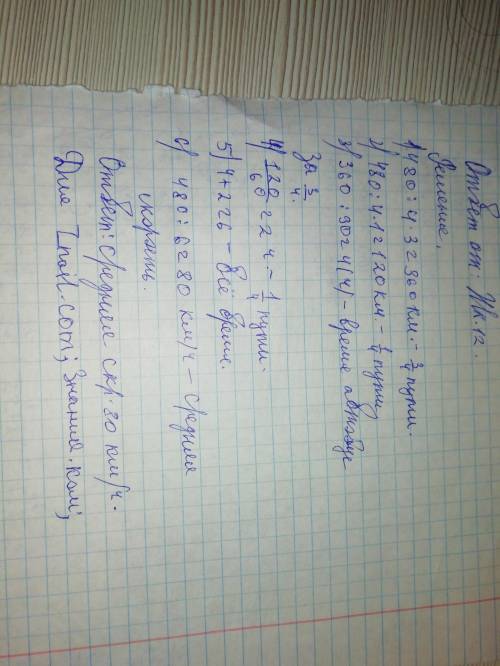 Ответ от: Ник.12.
Решение.
1) 480 : 4 · 3 = 360 км. - 3/4 пути.
2) 480 : 4 · 1 = 120 км. - 1/4 пути
3) 360 : 90 = 4 (ч) - время автобус
за 3/4.
4) 120/60 = 2 ч - 1/4 пути.
5) 4 + 2 = 6 - всё время.
6) 480 : 6 = 80 км/ч - средняя
скорость.
Ответ: средняя скр. 80 км/ч.
Для Znaij.com; Знания.ком;